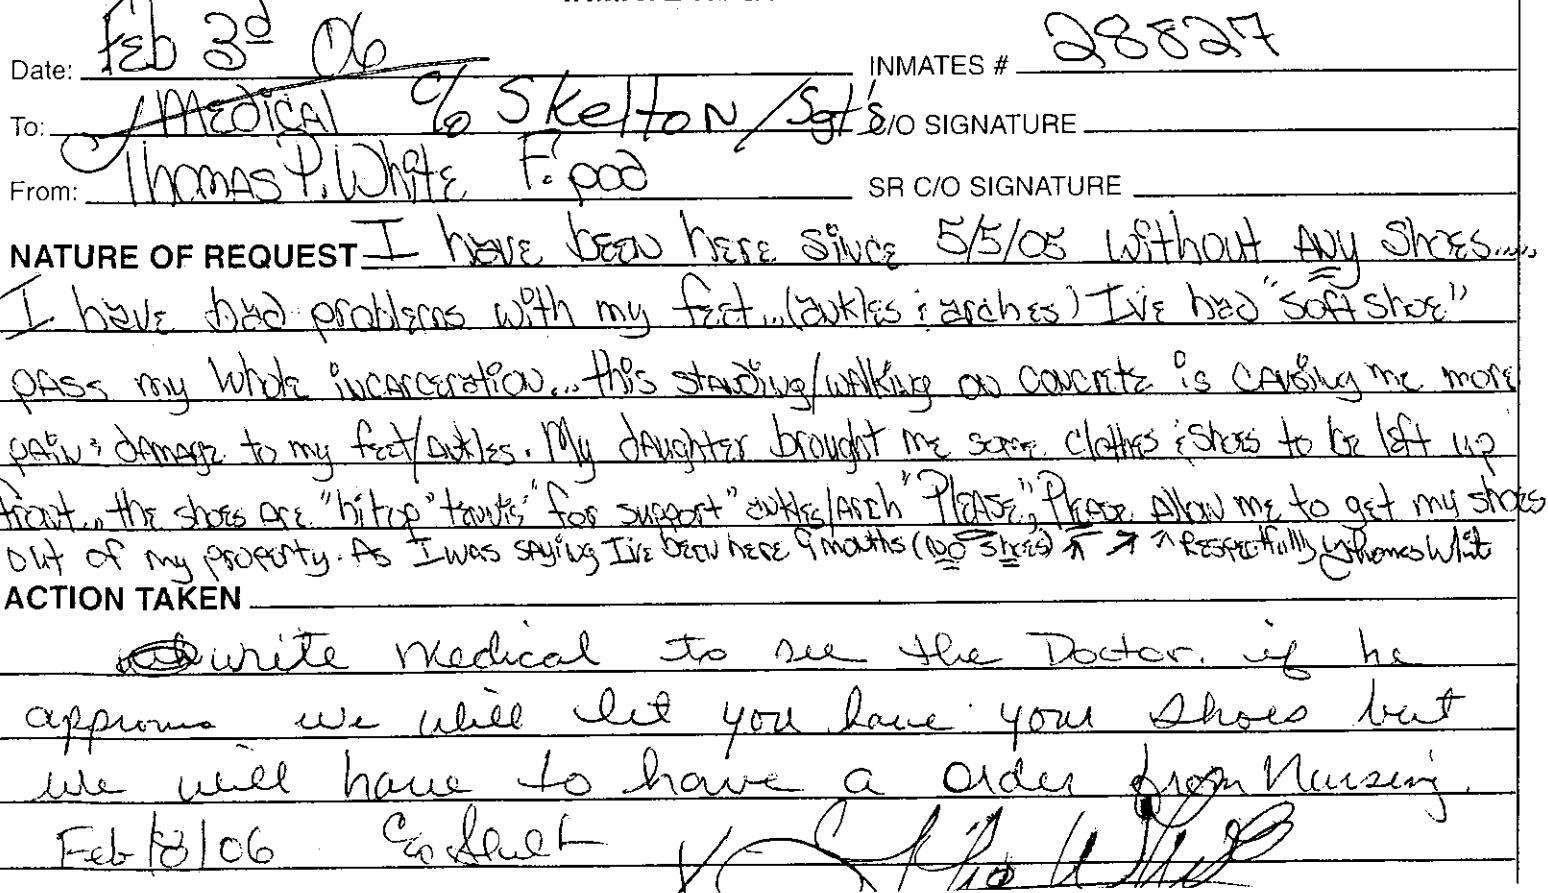 Date: Feb 3d 06 INMATES # 28827
To: Medical c/o Skelton/Sgt's C/O SIGNATURE
From: Thomas P. White F. pod SR C/O SIGNATURE
NATURE OF REQUEST I have been here since 5/5/05 without ANY shoes.....
I have had problems with my feet...(ankles & arches) I've had "soft shoe"
pass my whole incarceration...this standing/walking on concrete is causing me more
pain & damage to my feet/ankles. My daughter brought me some clothes & shoes to be left up
front...the shoes are "hitop" tennis" for support" ankles/arch "Please", Please allow me to get my shoes
out of my property. As I was saying I've been here 9 months (no shoes) ↑ ↗ ↑ Respectfully Thomas White
ACTION TAKEN
write medical to see the Doctor. if he
approves we will let you have your shoes but
we will have to have a order from Nursing.
Feb/8/06 C/o